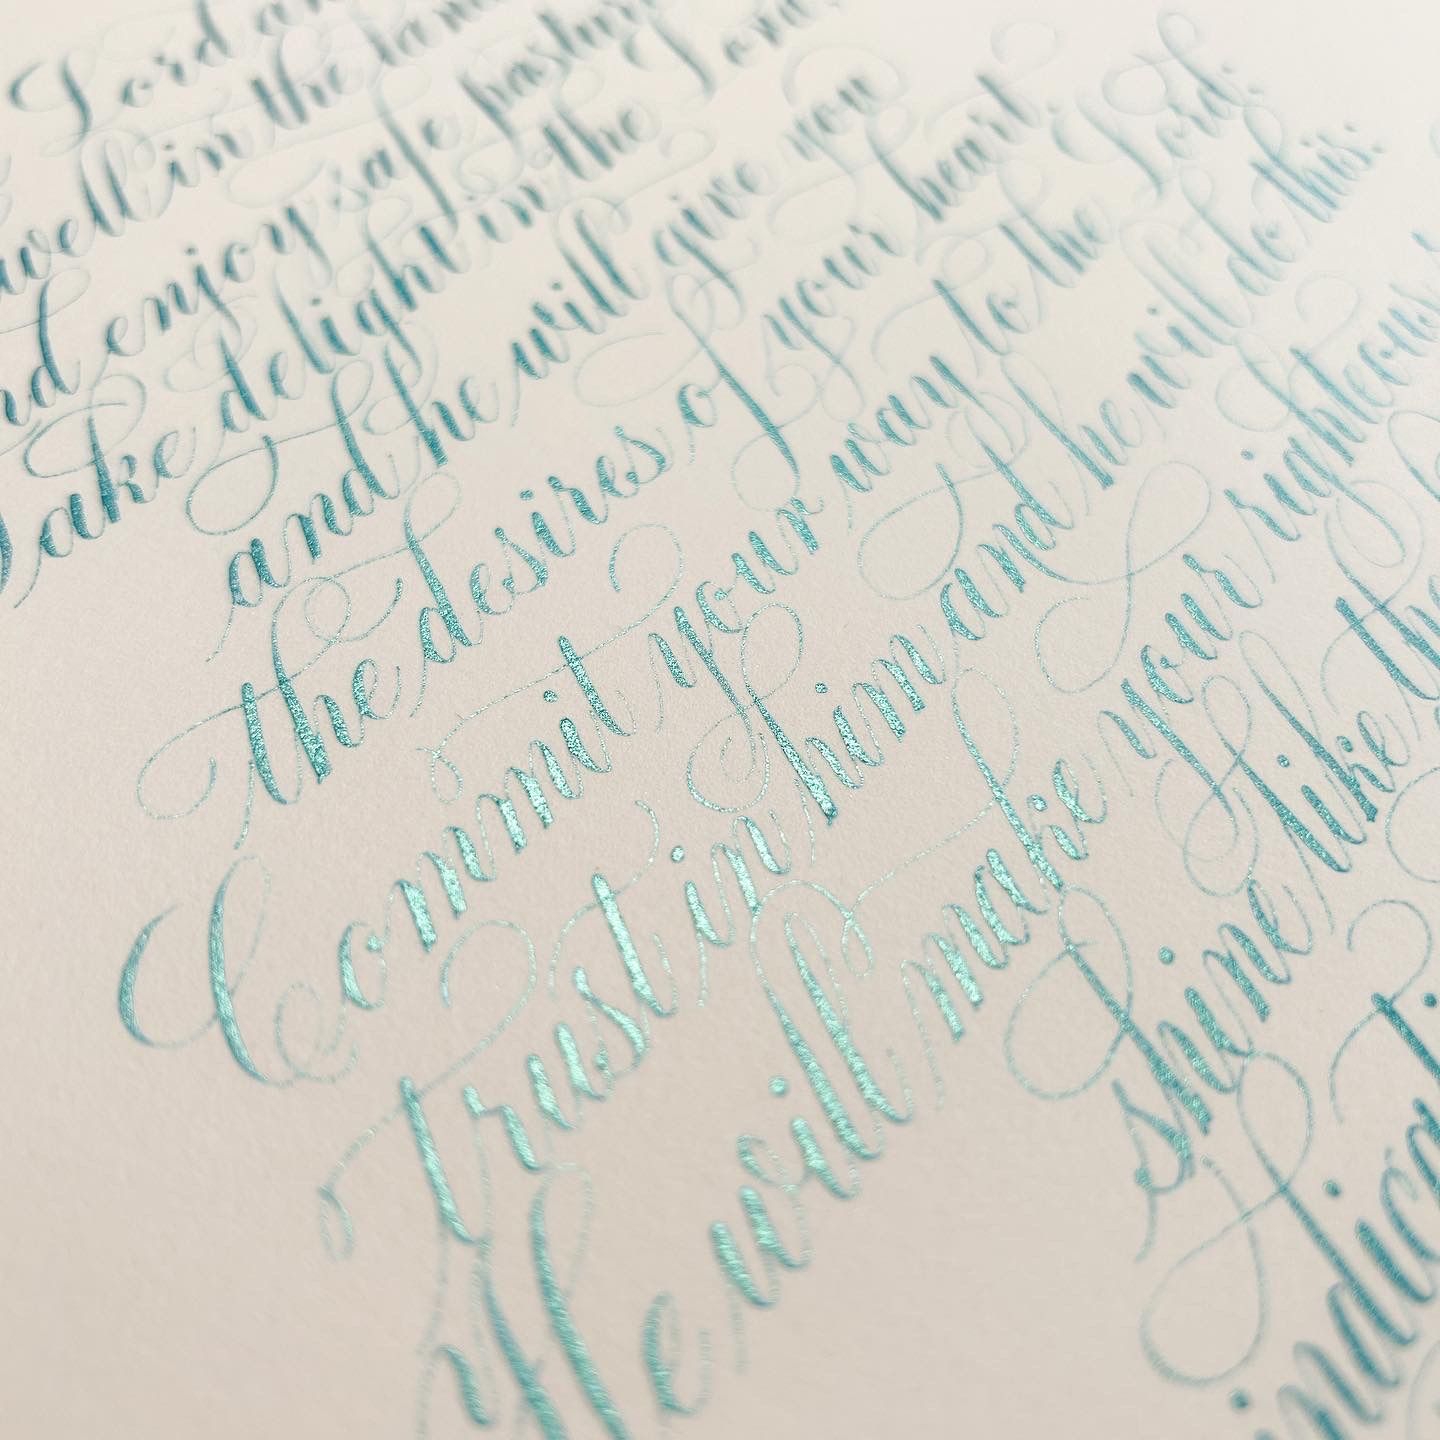 Lord an
well in the lan
nd enjoy safe pastur
Take delight in the Lord,
and he will give you
the desires of your heart.
Commit your way to the Lord:
trust in him and he will do this:
He will make your righteous
shine like the
indicati